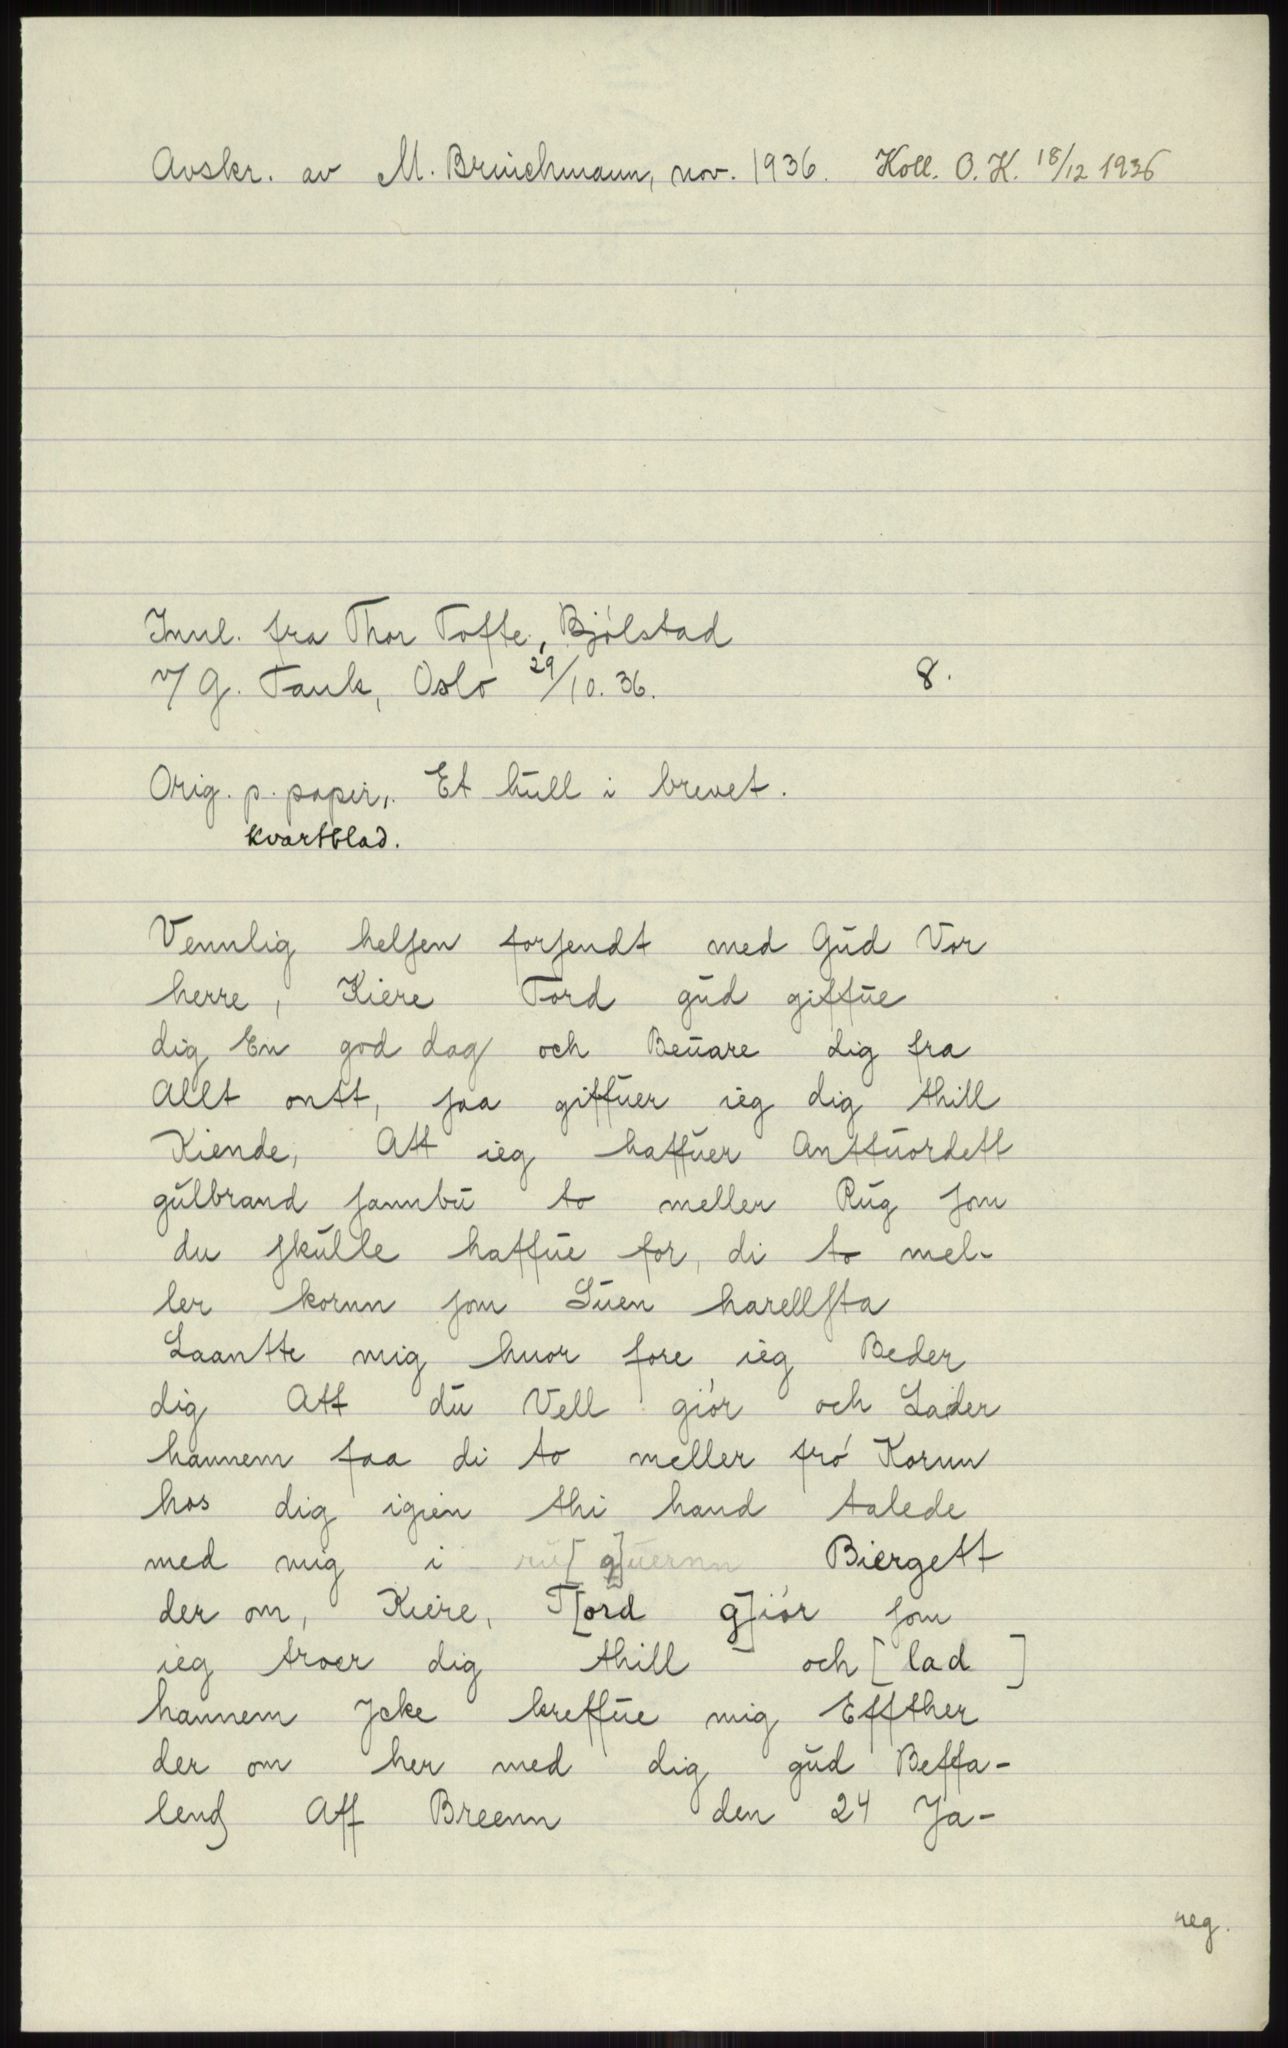 Avskr. av M. Brinchmann, nov. 1936. Koll. O.K. 18/12 1936
Innl. fra Thor Tofte, Bjølstad
v/ G. Tank, Oslo 29/10. 36. 8.
Orig. p. papir,. Et hull i brevet.
kvartblad.
Vennlig helsen forsendt med Gud Vor
herre, Kiere Tord gud giffue
dig En god dag och Beuare dig fra
Allt ontt, saa giffuer ieg dig thill
Kiende, Att ieg haffuer Anttuordett
gulbrand sannbu to meller Rug som
du skulle haffue for, di to mel-
ler kornn som Suen harellsta
Laantte mig huor fore ieg Beder
dig Att du Vell giør och Lader
hannem faa di to meller frø Kornn
hos dig igien thi hand talede
med mig i ru[g]uernn Biergett
der om, Kiere, T[ord g]iør som
ieg troer dig thill och [lad ]
hannem Jcke kreffue mig Effther
der om her med dig gud Beffa-
lend Aff Breenn den 24 Ja-
reg.